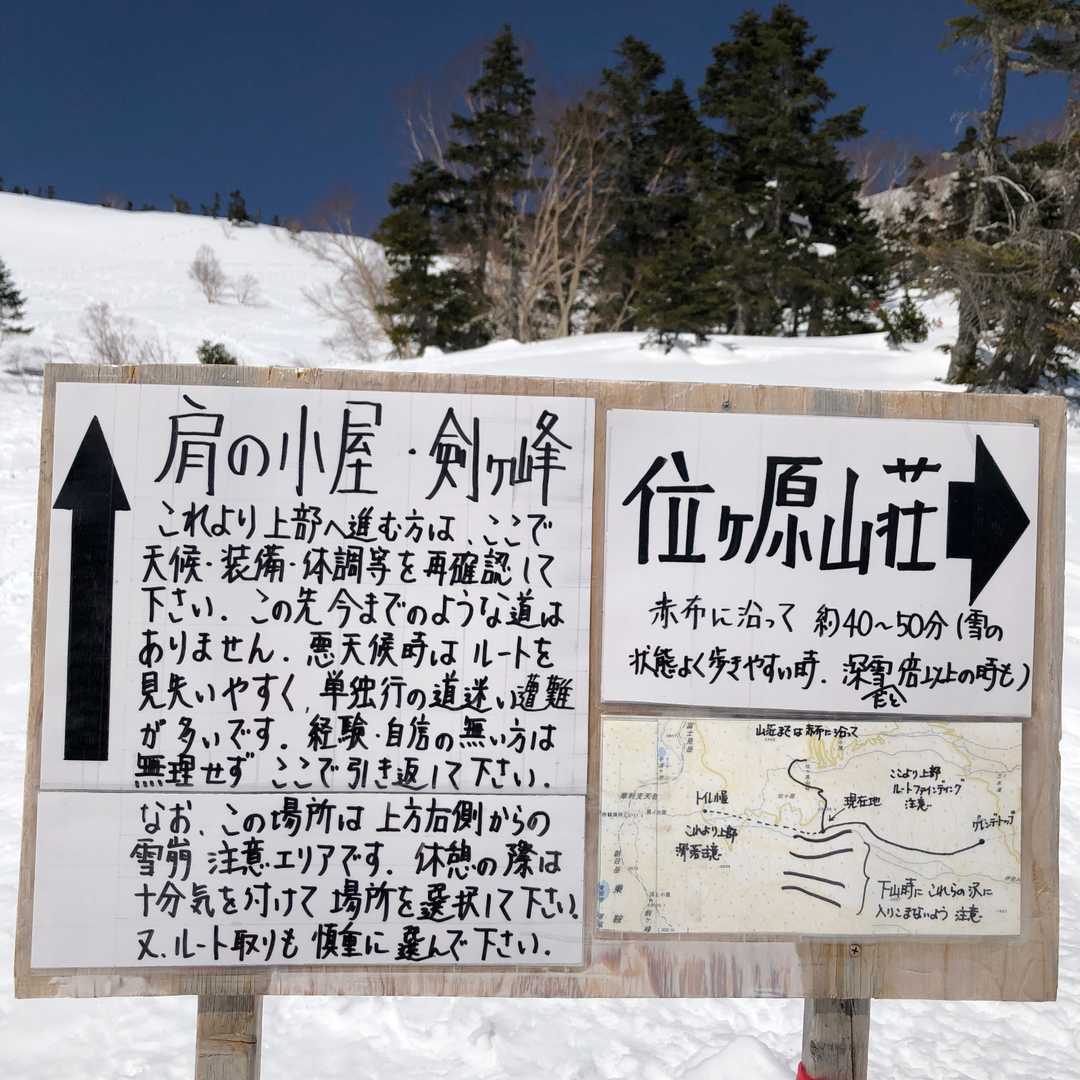 肩の小屋・剣ヶ峰
これより上部へ進む方は、ここで
天候・装備・体調等を再確認して
下さい. この先今までのような道は
ありません. 悪天候時は ルートを
見失いやすく, 単独行の道迷い遭難
が多いです. 経験・自信の無い方は
無理せず ここで引き返して下さい.
なお、この場所は 上方右側からの
雪崩 注意エリアです. 休憩の際は
十分気を付けて 場所を選択して下さい.
又、ルート取りも 慎重に 選んで下さい.
位ヶ原山荘
赤布に沿って 約40〜50分(雪の
状態よく歩きやすい時. 深雪だと倍以上の時も)
山荘までは赤布に沿って
富士見岳
ここより上部
ルートファインディング
注意
トイレ小屋
現在地
ゲレンデトップ
これより上部
滑落注意
摩利支天岳
朝日岳
乗
鞍
剣ヶ峰
下山時に これらの沢に
入りこまないよう 注意